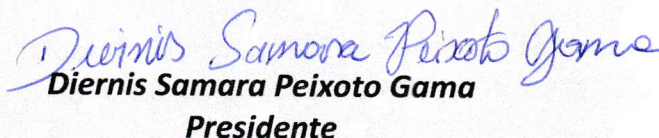 Diernis Samara Peixoto Gama
Diernis Samara Peixoto Gama
Presidente